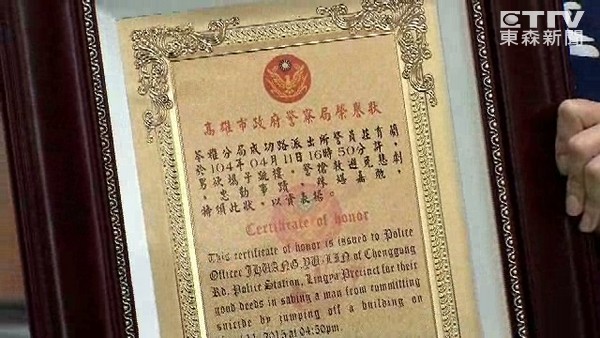 ETTV
東森新聞
高雄市政府警察局榮譽狀
苓雄分局成功路派出所警員莊育蘭
於104年04月11日16時50分許,
男欲搞子
事蹟,殊堪嘉勉,
特頒此狀,以資表揚。
Certificate of honor
This certificate of honor is issued to Police
Officer JHUANG,YU-LIN of Chenggong
Rd. Police Station, Lingya Precinct for their
good deeds in saving a man from committing
suicide by jumping off a building on
11,2015 at 04:50pm.